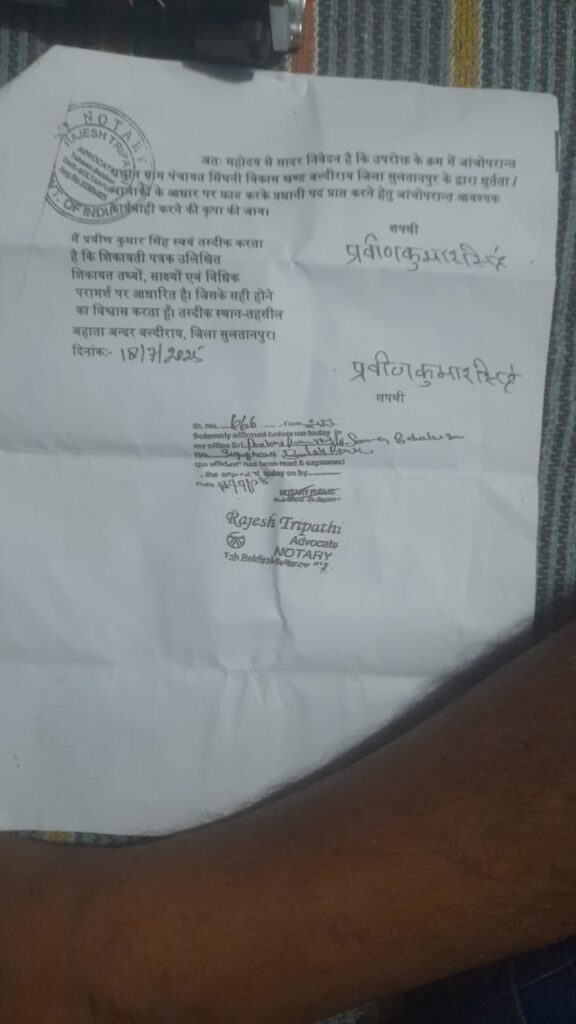 NOTARY
RAJESH TRIPA
ADVOCATE
GOVT. OF INDIA
अतः महोदय से सादर निवेदन है कि उपरोक्त के क्रम में जांचोपरान्त
ग्राम पंचायत सिंघनी विकास खण्ड बल्दीराय जिला सुलतानपुर के द्वारा धुर्तता /
चालाकी के आधार पर फ्राड करके प्रधानी पद प्राप्त करने हेतु जांचोपरान्त आवश्यक
कार्यवाही करने की कृपा की जाय।
शपथी
प्रवीण कुमार सिंह
मैं प्रवीण कुमार सिंह स्वयं तस्दीक करता
है कि शिकायती पत्रक उलिखित
शिकायत तथ्यों, साक्ष्यों एवं विधिक
परामर्श पर आधारित है। जिसके सही होने
का विश्वास करता हूँ। तस्दीक स्थान-तहसील
अहाता अन्दर बल्दीराय, जिला सुलतानपुर।
दिनांक:- 18/7/2025
प्रवीण कुमार सिंह
शपथी
Sl. No. 666 Time
Solemnly affirmed before me today in
my office Sri
has been read & explained
today on by
Date
NOTARY PUBLIC
Rajesh Tripathi
Advocate
NOTARY
Teh. Baldirai